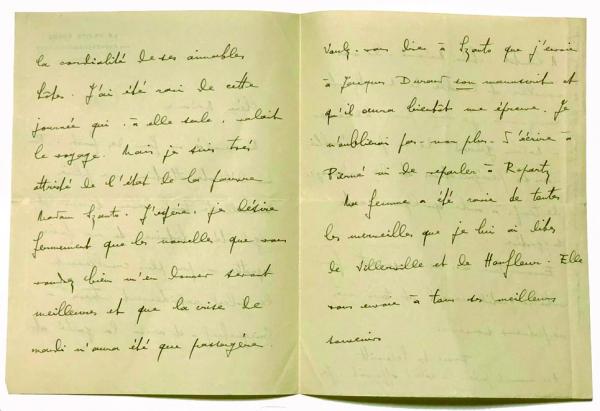 la cordialité de ses aimables
hôtes. J'ai été ravi de cette
journée qui, à elle seule, valait
le voyage. Mais je suis très
attristé de l'état de la pauvre
Madam Szanto. J'espère, je désire
fermement que les nouvelles que vous
voudrez bien m'en donner seront
meilleures et que la crise de
mardi n'aura été que passagère.
Voulez-vous dire à Szanto que j'envoie
à Jacques Durand son manuscrit et
qu'il aura bientôt une épreuve. Je
n'oublierai pas - non plus - d'écrire à
Pierné ni de reparler à Ropartz
Ma femme a été ravie de toutes
les merveilles que je lui ai dites
de Villerville et de Honfleur. Elle
vous envoie à tous ses meilleurs
souvenirs